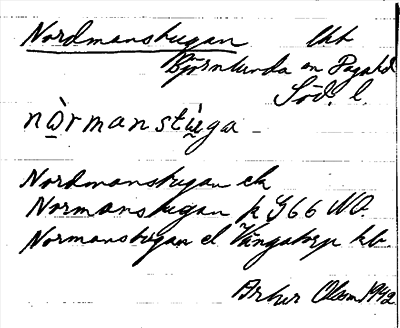 Nordmanstugan lht
Björnlunda sn Daga hd
Söd. l.
nòrmanstùga
Nordmanstugan ek
Normanstugan k G66 NO.
Normanstugan el Vängatorp kb.
Arthur Olsson 1942